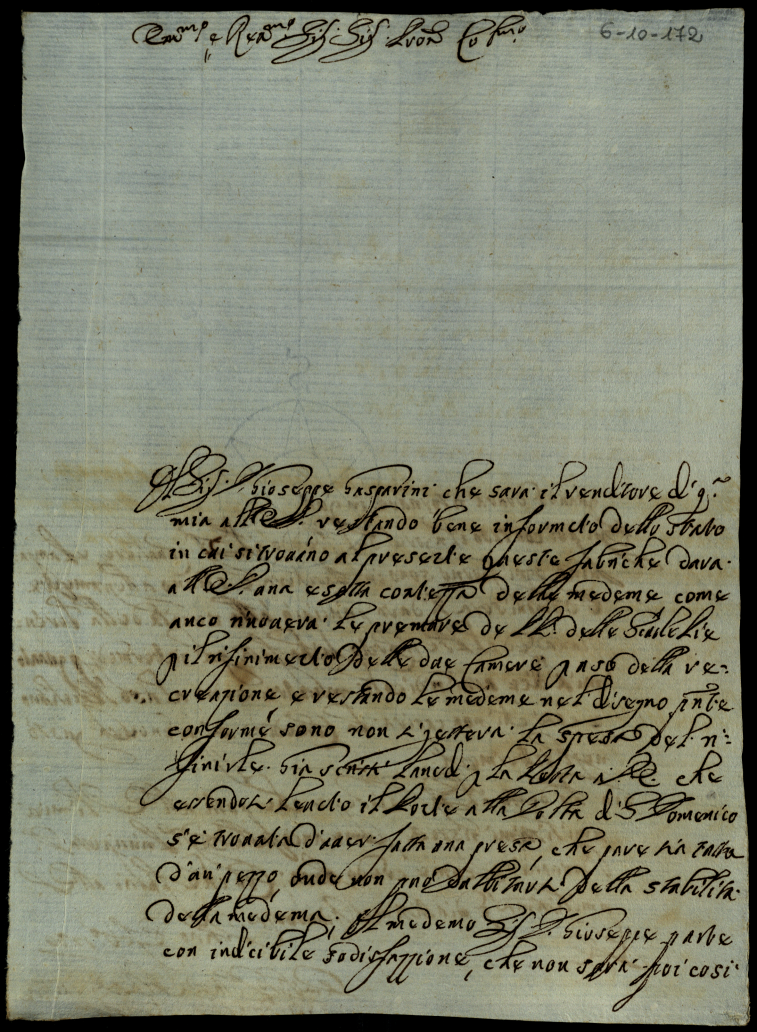 Em.mo e Rev.mo Sig: Sig: Pron Co
6-10-172
Il Sig. D. Gioseppe Gasparini che sara il renditore di q.ta
mia all restando bene informato dello stato
in cui si trovano al presente queste fabriche dara
all una esatta contezza delle medeme come
anco riceverà le premure de delle
p il rifinimento delle due Camere p uso della re=
creazione e restando le medeme nel disegno
conforme sono non la spesa del ri=
finirle. Gia scrissi Luned. p la Posta a che
essendo Lencio il Ponte alla Volta di S. Domenico
s'è trovata d'aver fatta una presa, che pare sia tutta
d'un pezzo, onde non puo dubitarsi della stabilità
della medema; Il medemo Sig. D. Gioseppe parte
con indicibile sodisfazzione, che non sarà poi cosi